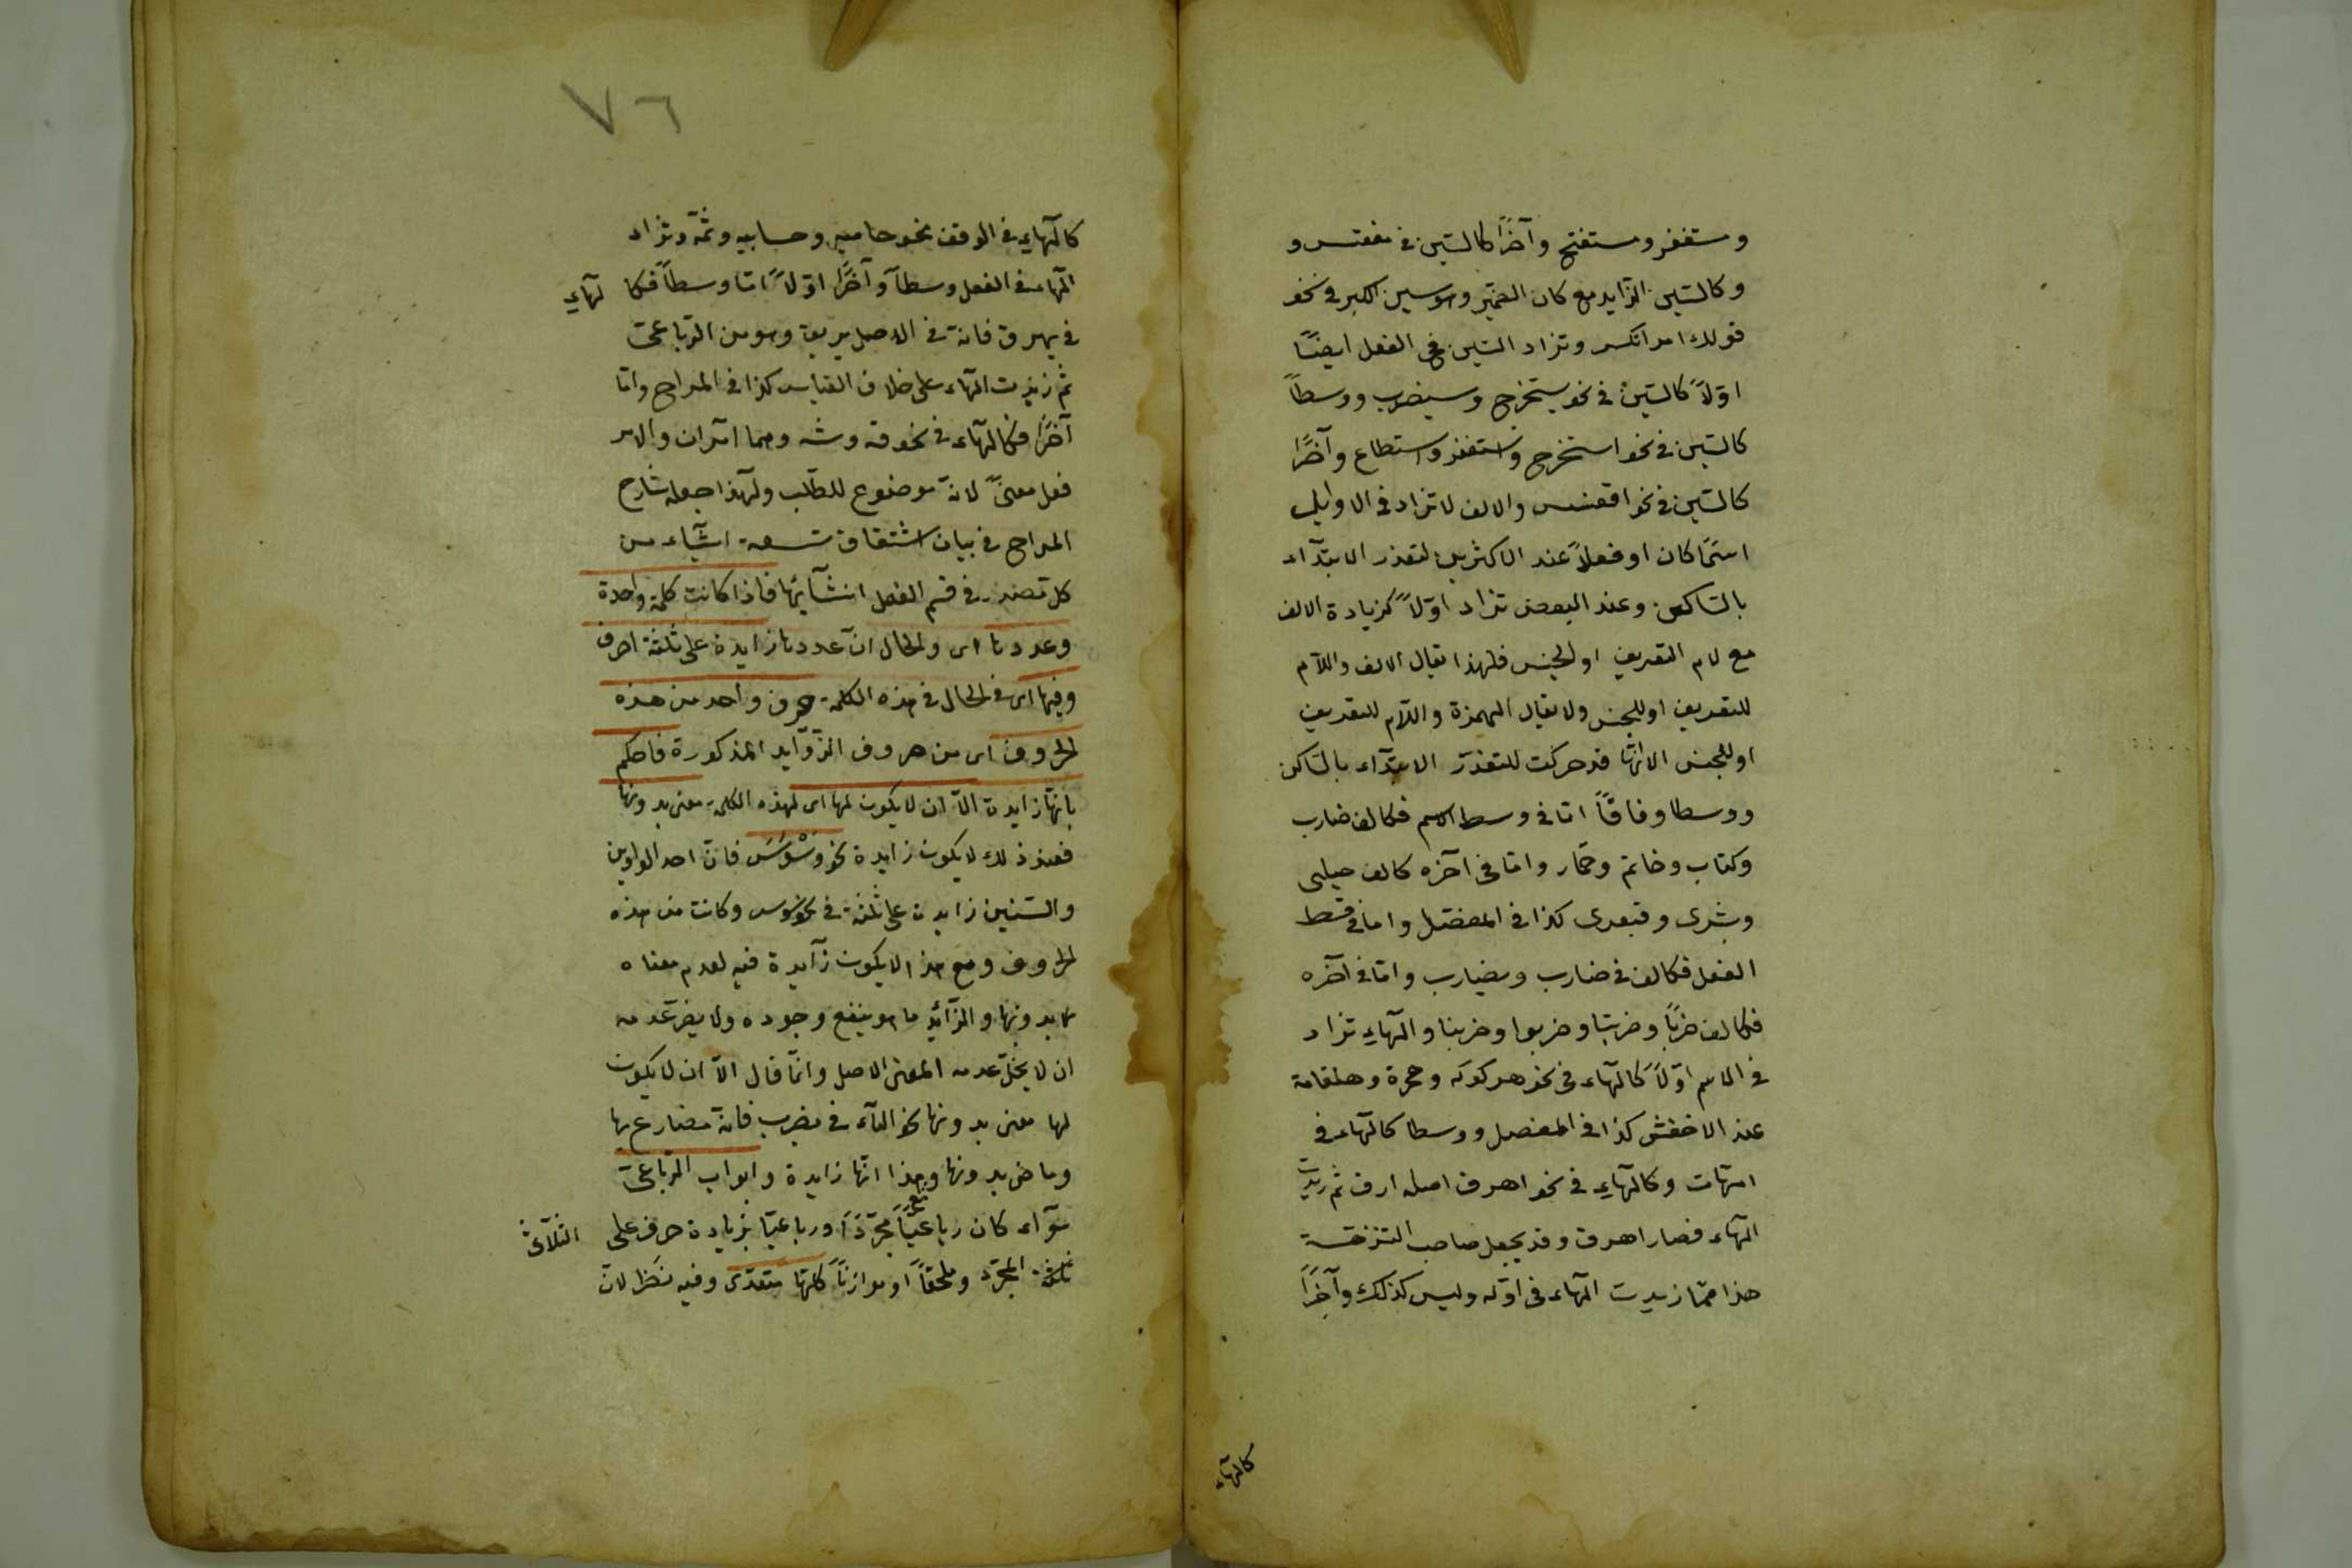 ومستغفر ومستفتح وآخرًا كالسّين فى مقعنسس و
وكالسّين الزايد مع كاف الضمير وهو سين الكسر فى نحو
قولك امرأتكس وتزاد السّين فى الفعل ايضًا
اوّلاً كالسّين فى نحو يستخرج وسيضرب ووسطاً
كالسّين فى نحو استخرج واستغفر واستطاع وآخرًا
كالسّين فى نحو اقعنسس والالف لا تزاد فى الاوايل
اسمًا كان او فعلاً عند الاكثرين لتعذر الابتدآء
بالسّاكن وعند البعض تزاد اوّلاً كزيادة الالف
مع لام التعريف او الجنس فلهذا يقال الالف واللّام
للتعريف او للجنس ولا يقال الهمزة واللّام للتعريف
او للجنس الا انّها قد حركت للتعذّر الابتدآء بالسّاكن
ووسطا وفاقًا امّا فى وسط الاسم فكالف ضارب
وكتاب وخاتم وحمار وامّا فى آخره كالف حبلى
وبشرى وقبعثرى كذا فى المفصّل واما فى وسط
الفعل فكالف فى ضارب ويضارب وامّا فى آخره
فكالف ضربًا وضربتا وضربوا وضربنا والهآء تزاد
فى الاسم اوّلاً كالهآء فى نحو هركوله وهجرة وهلقامة
عند الاخفش كذا فى المفصل ووسطا كالهآء فى
امّهات وكالهآء فى نحو اهرق اصله ارق ثم زيدت
الهآء فصار اهرق وقد يجعل صاحب النزهة
هذا ممّا زيدت الهآء فى اوّله وليس كذلك وآخرًا
كالهآء
٧٦
كالهآء فى الوقف نحو حاميه وحسابيه وثمّه وتزاد
الهآء فى الفعل وسطاً وآخرًا اوّلاً امّا وسطاً فكا لهآء
فى يهريق فانه فى الاصل يريق وهو من الرّباعى
ثم زيدت الهآء على خلاف القياس كذا فى المراح وامّا
آخرًا فكالهآء فى نحو قه وشه وهما امران والامر
فعل معنىً لانّه موضوع للطلب ولهذا جعله شارح
المراح فى بيان اشتقاق تسعة اشيآء من
كل مصدر فى قسم الفعل انشآئيها فاذا كانت كلمة واحدة
وعددها اى والحال انّ عددها زايدة على ثلثة احرف
وفيها اى فى الحال فى هذه الكلمة حرف واحد من هذه
الحروف اى من حروف الزّوآيد المذكورة فاحكم
بانّها زايدة الّا ان لا يكون لها اى لهذه الكلمة معنى بدونها
فعند ذلك لا يكون زايدة نحو وَسْوَسَ فانّ احد الواوين
والسّنين زايدة على ثلثة فى وسوس وكانت من هذه
الحروف ومع هذا لا يكون زآيدة فيه لعدم معناه
بدونها والزآئد ما هو ينفع وجوده ولا يضرّ عدمه
ان لا يخلّ عدمه المعنى الاصل وانّما قال الّا ان لا يكون
لها معنى بدونها نحو اليآء فى يضرب فانه مضارع بها
وماض بدونها وهذا انّها زايدة وابواب الرّباعى
سوآء كان رباعيًّا مجرّدًا او رباعيّا بزيادة حرف على الثلاثى
ثلثة المجرّد وملحقاً او موازناً كلّها متعدّى وفيه نظر لان